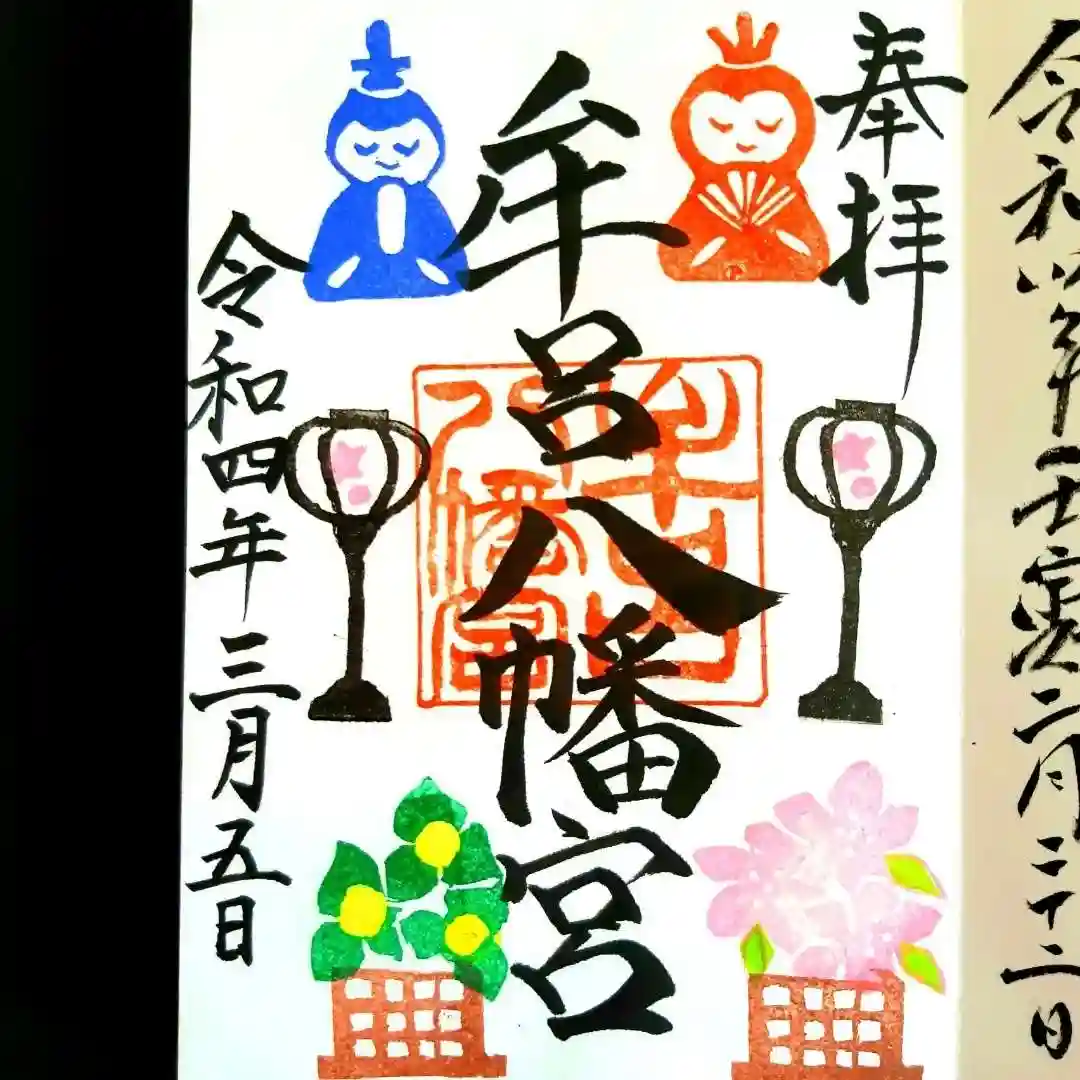 令和四年 壬寅 二月二十二日
奉拝
牟呂八幡宮
牟呂八幡宮
令和四年三月五日